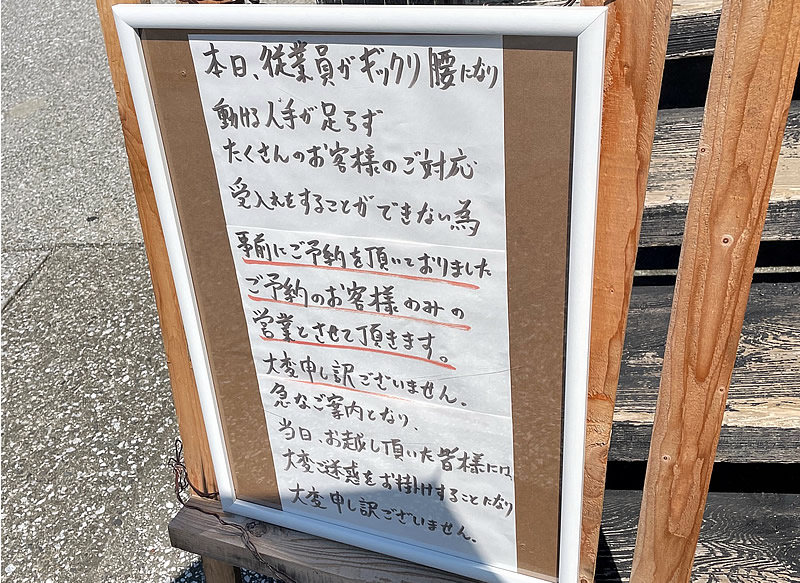 本日、従業員がギックリ腰になり
動ける人手が足らず
たくさんのお客様のご対応
受入れをすることができない為
事前にご予約を頂いておりました
ご予約のお客様のみの
営業とさせて頂きます。
大変申し訳ございません。
急なご案内となり、
当日、お越し頂いた皆様には、
大変ご迷惑をお掛けすることになり
大変申し訳ございません。